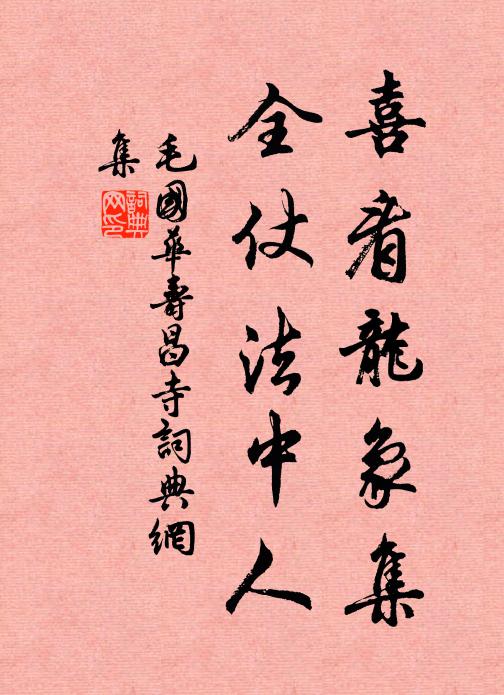 喜看龍象集
全仗法中人
毛國華壽昌寺詞典網
集
詞典網印